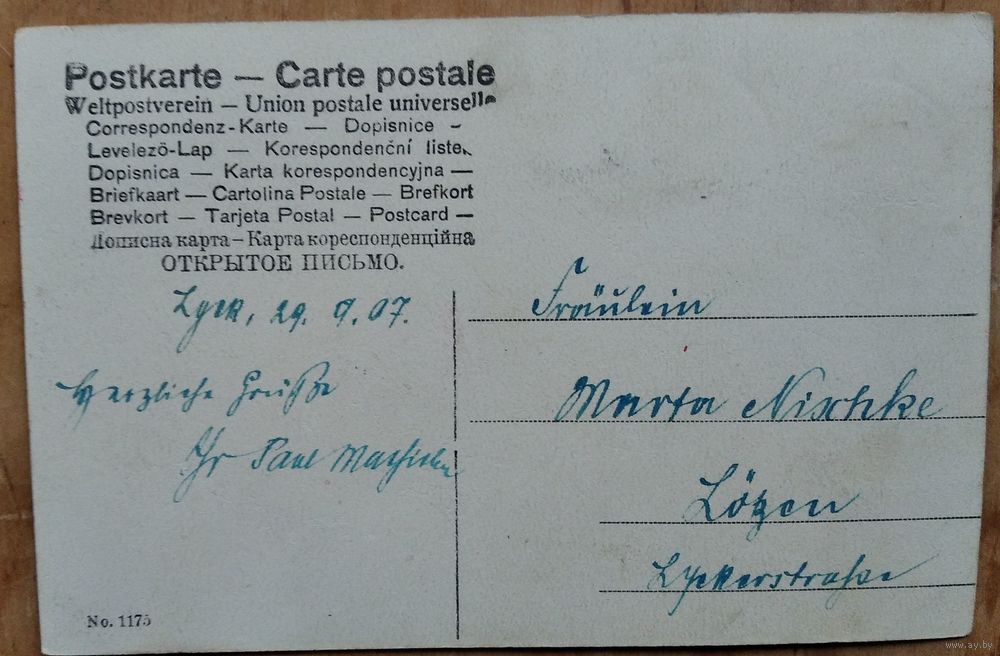 Postkarte — Carte postale
Weltpostverein — Union postale universelle
Correspondenz-Karte — Dopisnice —
Levelező-Lap — Korespondenční listek
Dopisnica — Karta korespondencyjna —
Briefkaart — Cartolina Postale — Brefkort
Brevkort — Tarjeta Postal — Postcard —
Дописна карта — Карта кореспонденційна
ОТКРЫТОЕ ПИСЬМО.
Lyck, 29. 9. 07.
Herzliche Grüße
Ihr Paul
No. 1175
Fräulein
Marta Nischke
Lötzen
Lyckerstraße
www.ay.by